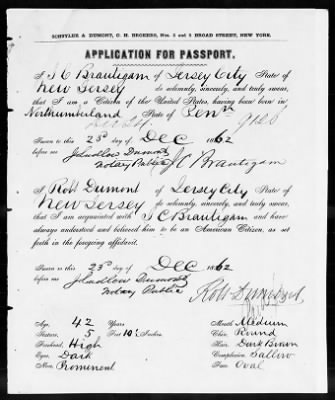 SCHUYLER & DUMONT, C. H. BROKERS, Nos. 3 and 5 BROAD STREET, NEW YORK.
APPLICATION FOR PASSPORT.
I J C Brautigam of Jersey City State of
New Jersey do solemnly, sincerely, and truly swear,
that I am a Citizen of the United States, having been born in
Northumberland State of Penn
Sworn to this 23d day of Dec 1862
before me J Ludlow Dumont
Notary Public J C Brautigam
I Robt Dumont of Jersey City State of
New Jersey do solemnly, sincerely, and truly swear,
that I am acquainted with J C Brautigam and have
always understood and believed him to be an American Citizen, as set
forth in the foregoing affidavit.
Sworn to this 23d day of Dec 1862
before me J Ludlow Dumont
Notary Public
Robt Dumont
Age, 42 Years Mouth, Medium
Stature, 5 Feet 10½ Inches Chin, Round
Forehead, High Hair, Dark Brown
Eyes, Dark Complexion, Sallow
Nose, Prominent Face, Oval